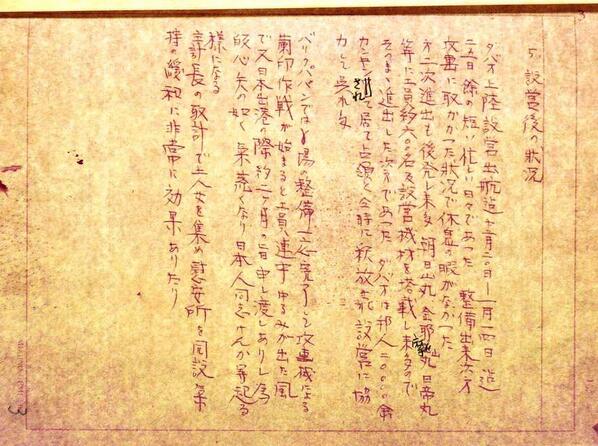 5. 設営後の状況
ダバオ上陸設営出航迄十二月二〇日―一月一四日迄
二五日余の短い忙しい日々であった 整備出来次第
攻略に取かかった状況で休息の暇がなかった
第二次進出も後発し来る 朝日山丸 金耶摩山丸 日帝丸
等に工員約六〇〇名及設営機材を塔載し来るので
そのまま進出した次第であった ダバオは邦人二〇〇〇〇余
カンキンされて居て占領と全時に釈放され設営に協
力して呉れた
バリクパパンでは 場の整備一応完了して攻撃機による
蘭印作戦が始まると工員連中ゆるみが出た風
で又日本出港の際約二ヶ月の旨申し渡しありし為
皈心矢の如く気荒くなり日本人同志けんか等起る
様になる
主計長の取計で土人女を集め慰安所を開設 気
持の緩和に非常に効果ありたり
3